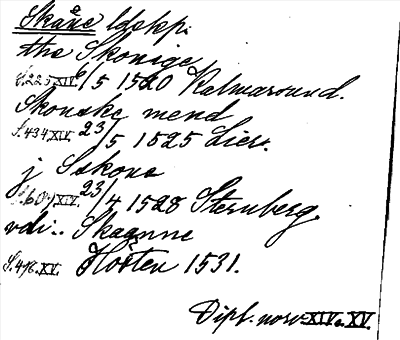 Skåne ldskp.
the Skonige
S.225 XIV. 6/5 1520 Kalmarsund.
Skonske mend
S.434 XIV. 23/5 1525 Lier.
j Sskone
XIV. 23/4 1528 Sternberg.
vdi.. Skaanne
S.496. XV. Hösten 1531.
Dipl. norv. XIV o. XV.